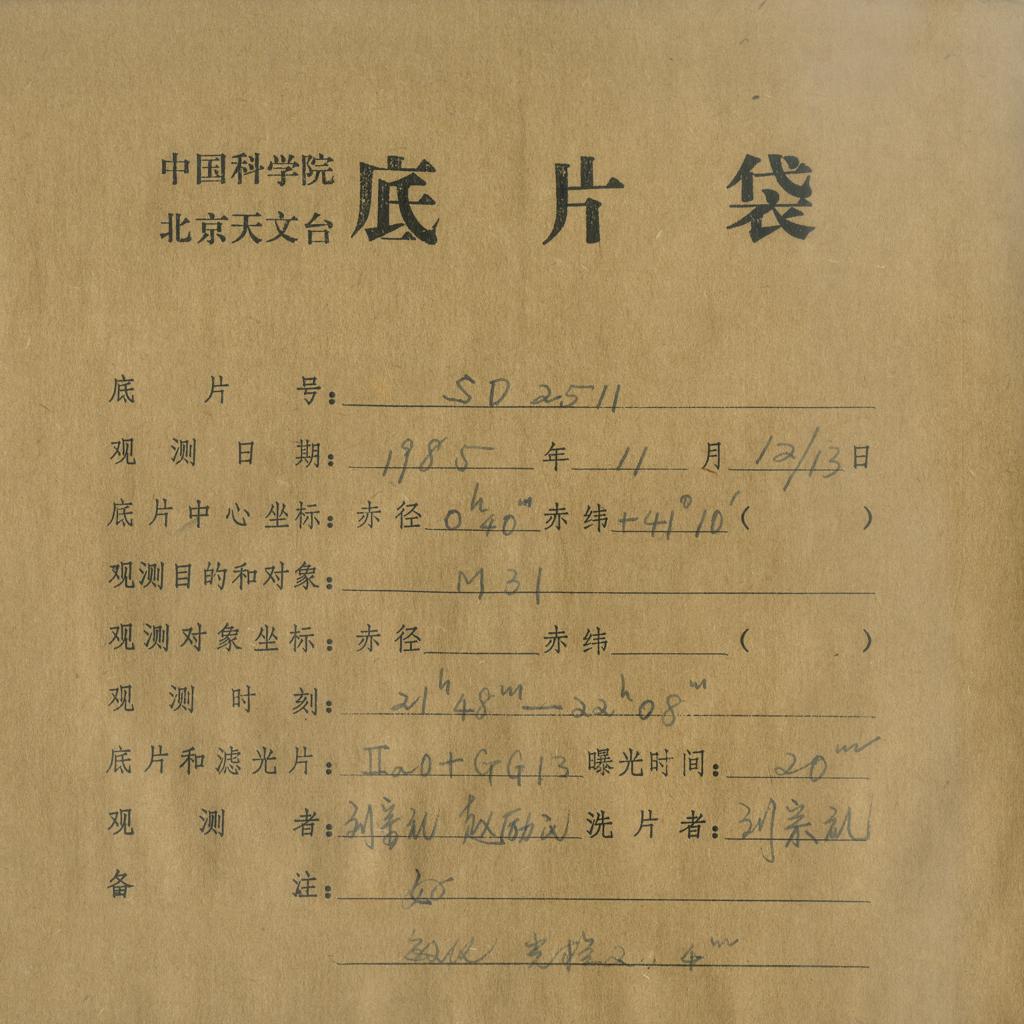 中国科学院
北京天文台
底片袋
底片号: SD 2511
观测日期: 1985 年 11 月 12/13 日
底片中心坐标: 赤径 0h40m 赤纬 +41°10′ ( )
观测目的和对象: M31
观测对象坐标: 赤径 赤纬 ( )
观测时刻: 21h48m—22h08m
底片和滤光片: IIaO+GG13 曝光时间: 20m
观测者: 刘宗礼 赵励民 洗片者: 刘宗礼
备注: 好
敏化 4m